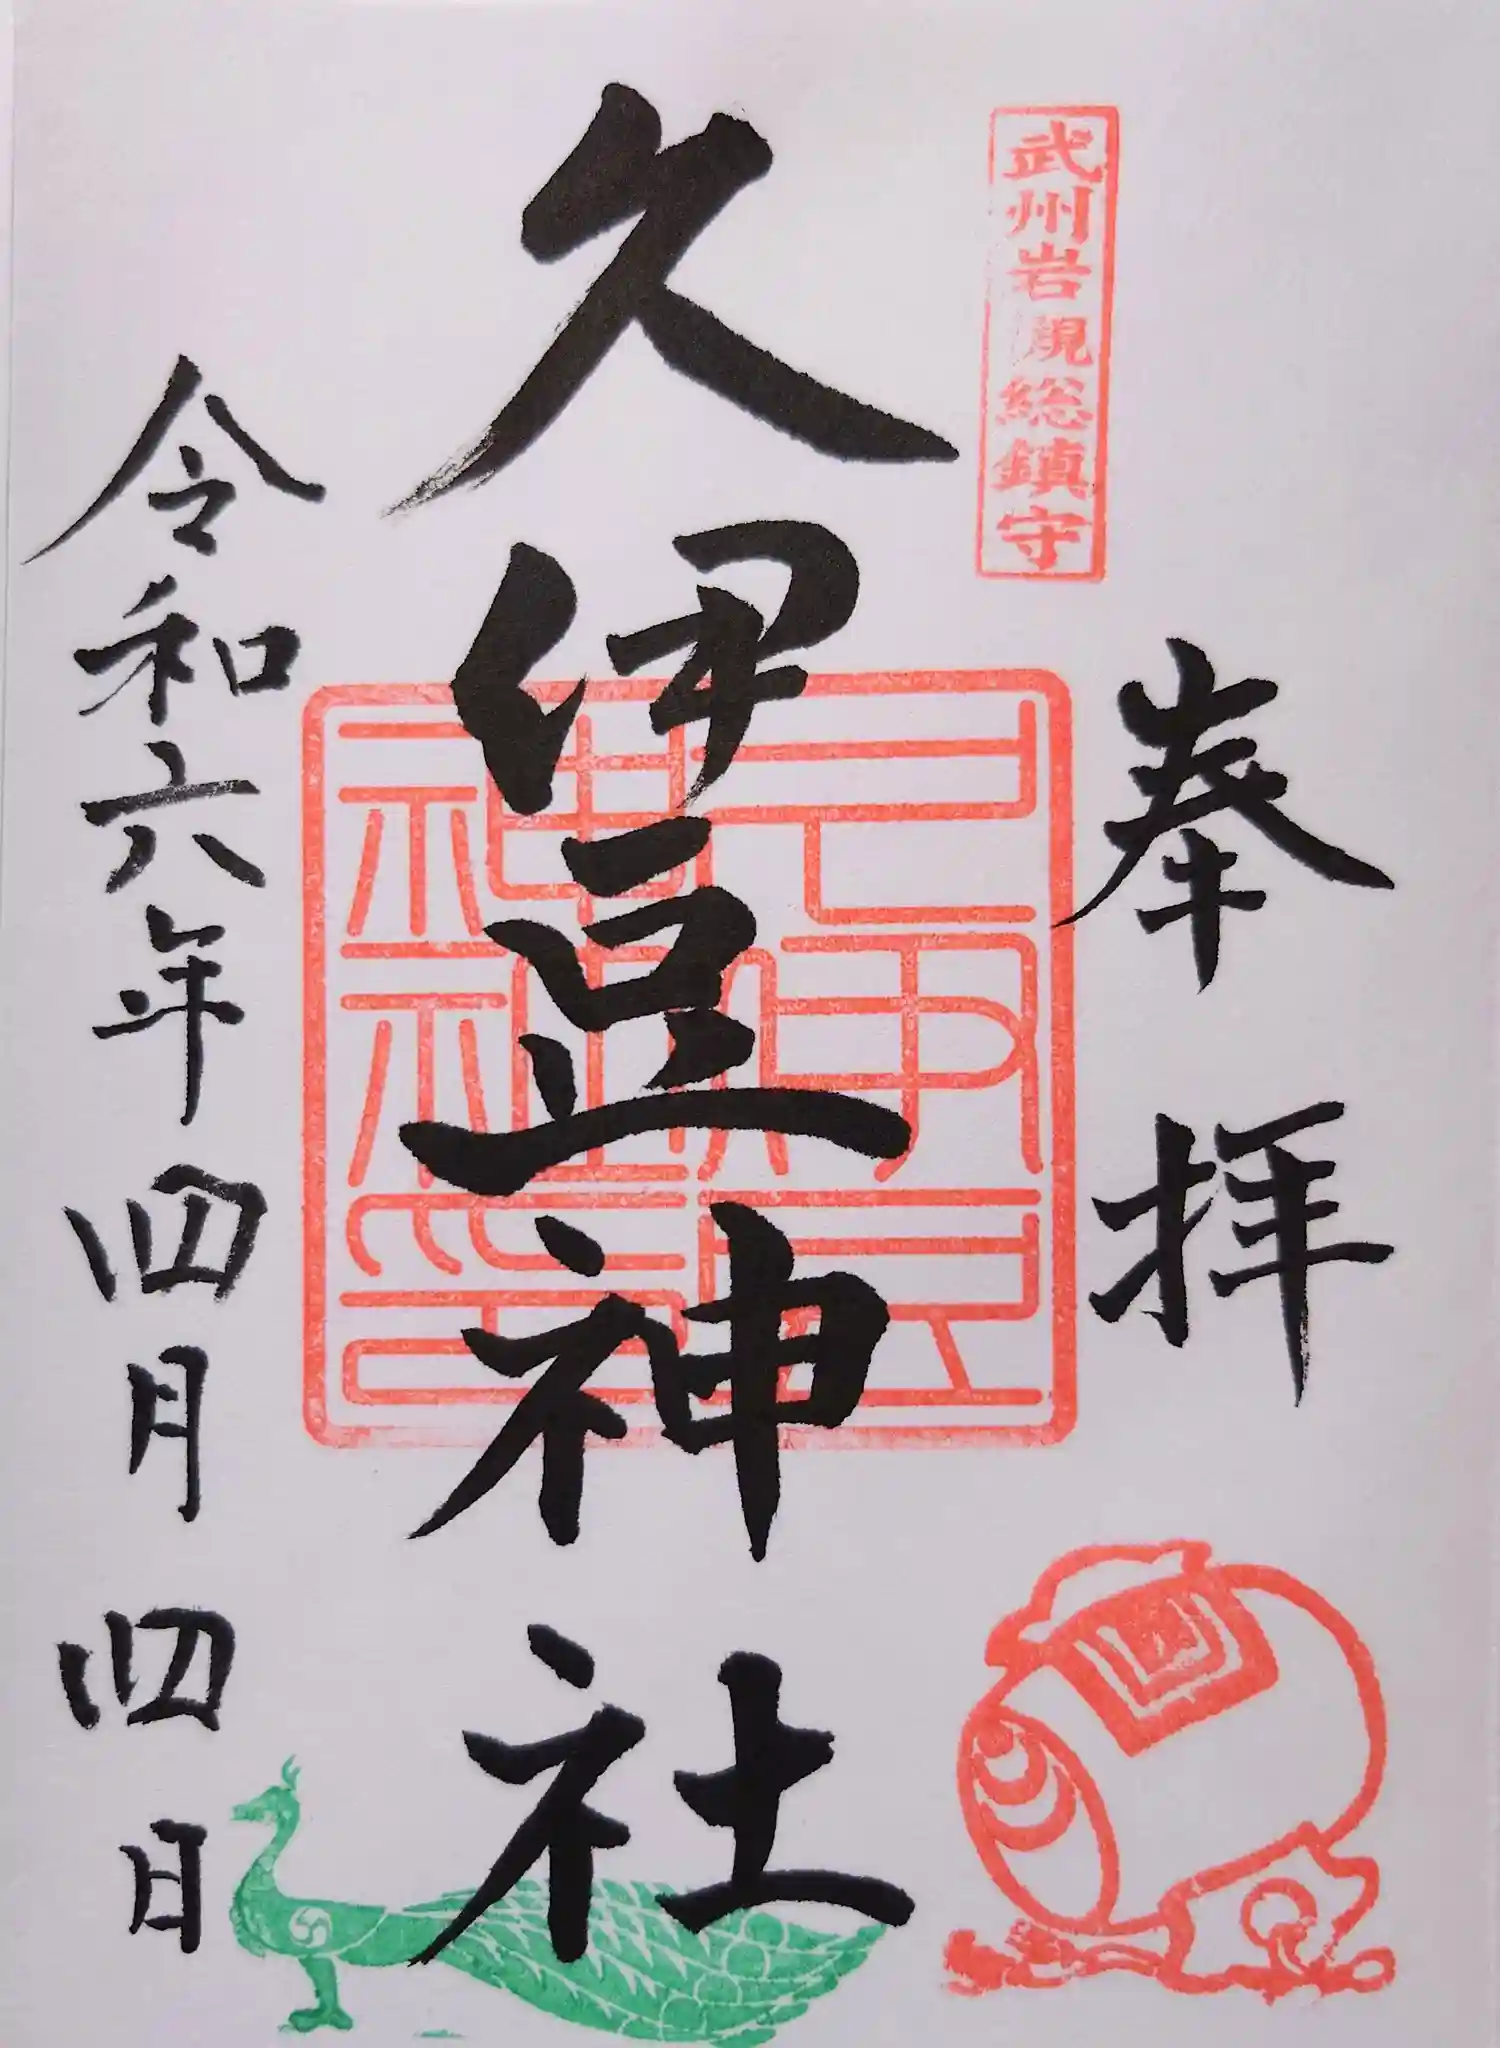 武州岩槻総鎮守
奉拝
久伊豆神社
久伊豆神社印
令和六年四月四日